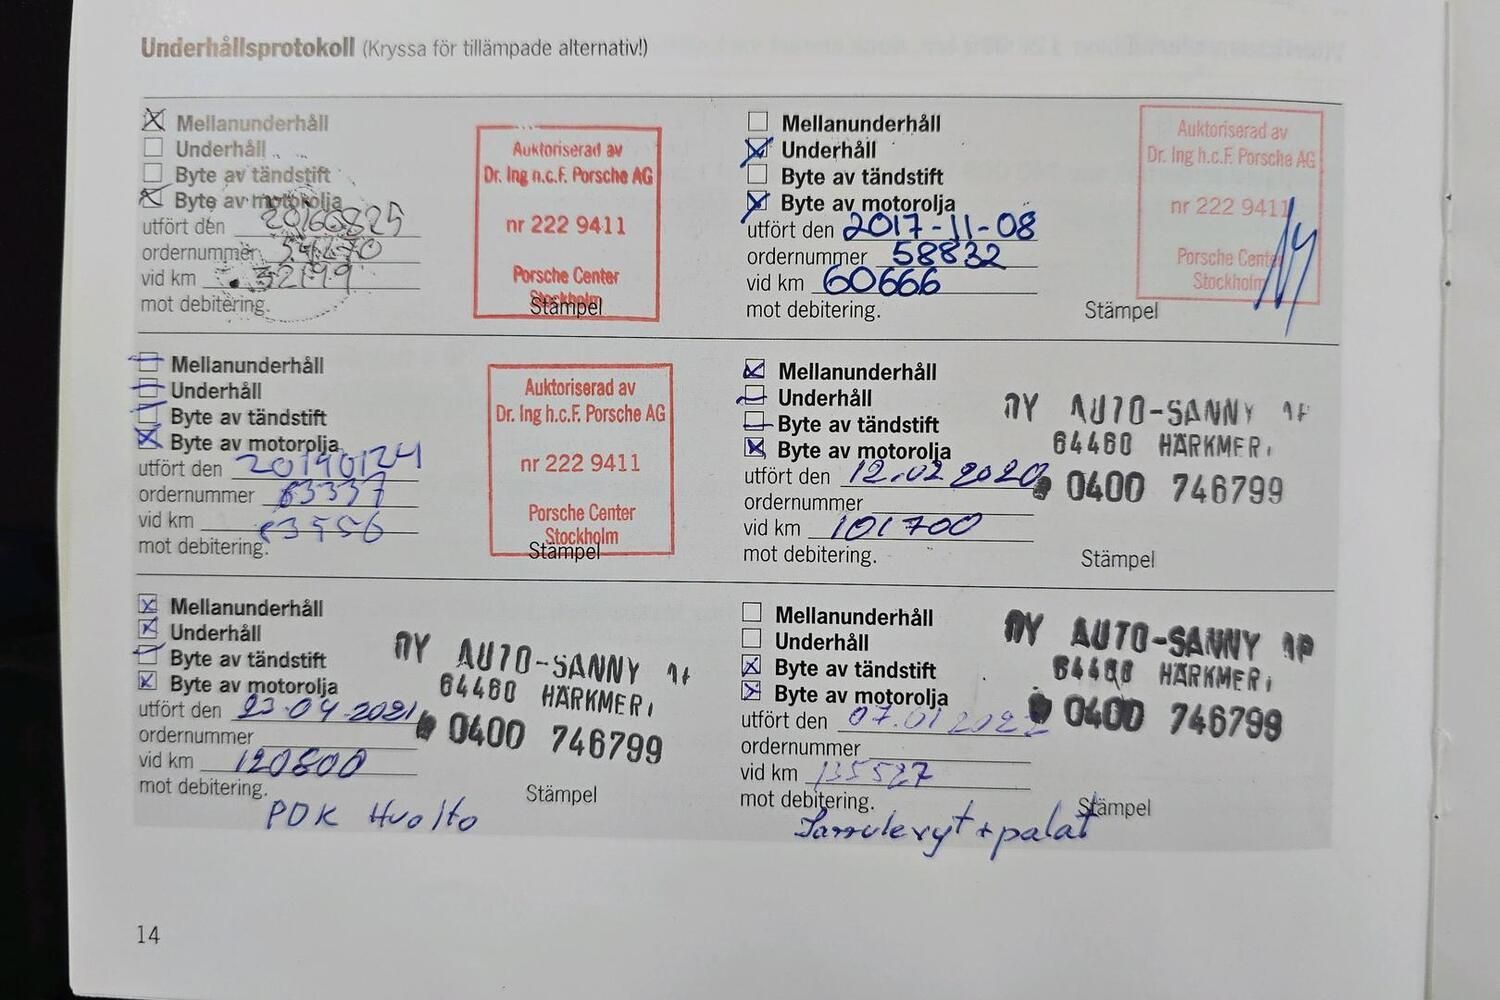 Underhållsprotokoll (Kryssa för tillämpade alternativ!)
Mellanunderhåll
Underhåll
Byte av tändstift
Byte av motorolja
utfört den 20160825
ordernummer
vid km 32199
mot debitering.
Auktoriserad av
Dr. Ing h.c.F. Porsche AG
nr 222 9411
Porsche Center
Stockholm
Stämpel
Mellanunderhåll
Underhåll
Byte av tändstift
Byte av motorolja
utfört den 2017-11-08
ordernummer 58832
vid km 60666
mot debitering.
Auktoriserad av
Dr. Ing h.c.F. Porsche AG
nr 222 9411
Porsche Center
Stockholm
Stämpel
Mellanunderhåll
Underhåll
Byte av tändstift
Byte av motorolja
utfört den 20190124
ordernummer 63337
vid km
mot debitering.
Auktoriserad av
Dr. Ing h.c.F. Porsche AG
nr 222 9411
Porsche Center
Stockholm
Stämpel
Mellanunderhåll
Underhåll
Byte av tändstift
Byte av motorolja
utfört den 12.02 2020
ordernummer
vid km 101700
mot debitering.
NY AUTO-SANNY
64460 HÄRKMERI
0400 746799
Stämpel
Mellanunderhåll
Underhåll
Byte av tändstift
Byte av motorolja
utfört den 23.04.2021
ordernummer
vid km 120800
mot debitering.
NY AUTO-SANNY
64460 HÄRKMERI
0400 746799
Stämpel
PDK Huolto
Mellanunderhåll
Underhåll
Byte av tändstift
Byte av motorolja
utfört den 07.01 2022
ordernummer
vid km 135527
mot debitering.
NY AUTO-SANNY
64460 HÄRKMERI
0400 746799
Stämpel
Jarrulevyt + palat
14